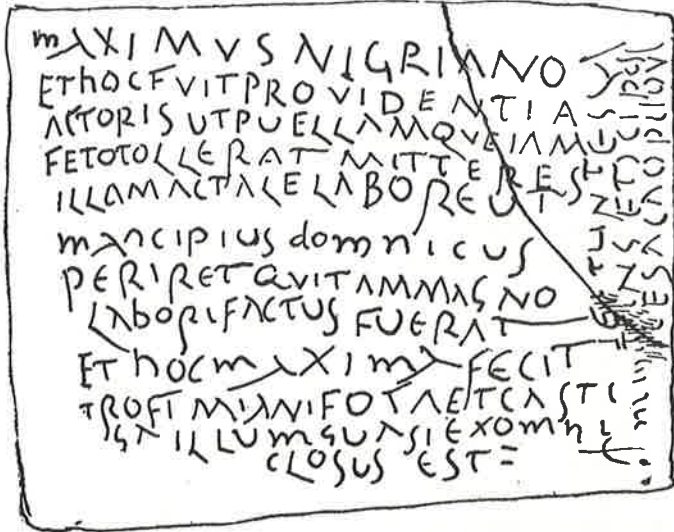 mAXIMVS NIGRIANO
EThOCFVITPROVIDENTIA
ACTORISUTPUELLAMQVEIAM
FETOTOLLERATMITTERES
ILLAMACTALELABOREUT
mAnCIPIUS domnicus
PERIRETQVITAMMAGNO
LAbORIFACTUSFUERAT
EThOCmAXImAFECIT
TROFIMIANIFOTAETCASTI
GAILLUMQUASIEXOmnI
CLOSUS EST